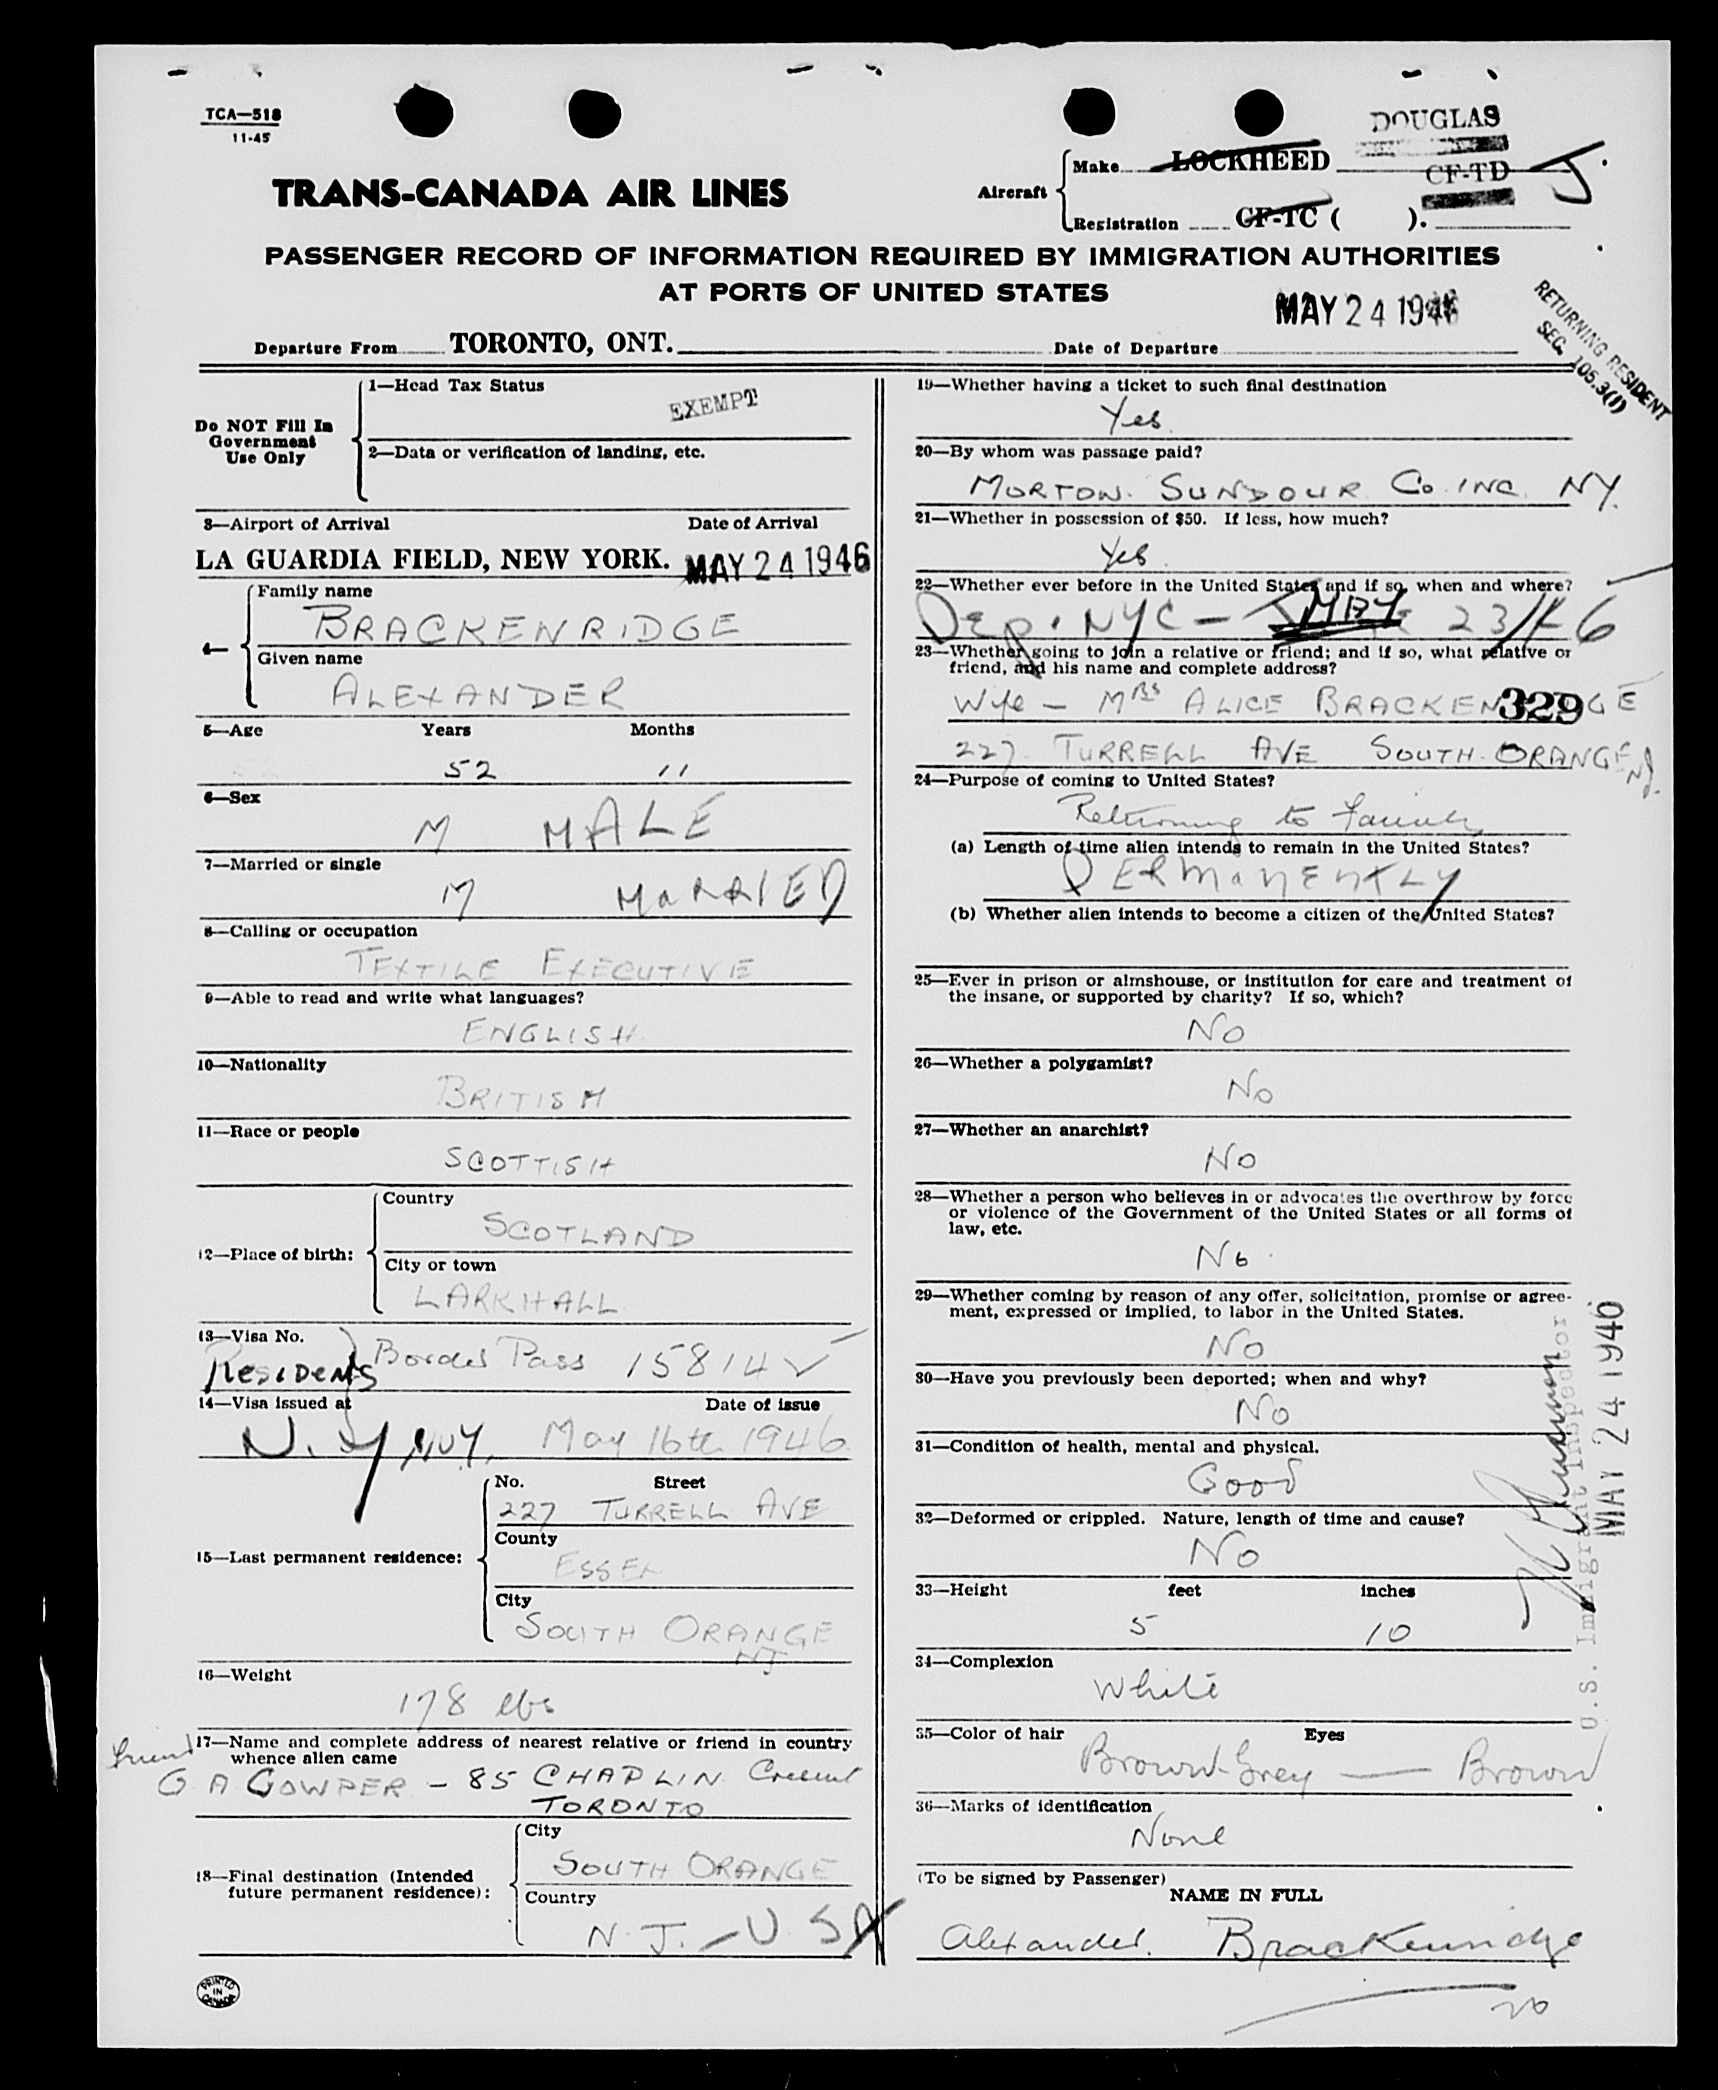 TCA—518
11-45
DOUGLAS
Aircraft
Make LOCKHEED
CF-TD J.
Registration CF-TC ( ).
TRANS-CANADA AIR LINES
PASSENGER RECORD OF INFORMATION REQUIRED BY IMMIGRATION AUTHORITIES
AT PORTS OF UNITED STATES
MAY 24 1946
RETURNING RESIDENT
SEC. 105.3(1)
Departure From TORONTO, ONT. Date of Departure
Do NOT Fill In
Government
Use Only
1—Head Tax Status
EXEMPT
2—Data or verification of landing, etc.
3—Airport of Arrival Date of Arrival
LA GUARDIA FIELD, NEW YORK. MAY 24 1946
4—
Family name
BRACKENRIDGE
Given name
ALEXANDER
5—Age Years Months
52 11
6—Sex
M MALE
7—Married or single
M MARRIED
8—Calling or occupation
TEXTILE EXECUTIVE
9—Able to read and write what languages?
ENGLISH
10—Nationality
BRITISH
11—Race or people
SCOTTISH
12—Place of birth:
Country
SCOTLAND
City or town
LARKHALL
13—Visa No.
Residents Border Pass 15814 ✓
14—Visa issued at Date of issue
N.Y, N.Y. May 16th 1946
15—Last permanent residence:
No. Street
227 TURRELL AVE
County
ESSEX
City
SOUTH ORANGE
NJ
16—Weight
178 lbs
17—Name and complete address of nearest relative or friend in country
whence alien came
friend
G A COWPER — 85 CHAPLIN Crescent
TORONTO
18—Final destination (Intended
future permanent residence):
City
SOUTH ORANGE
Country
N.J. — U.S.A
PRINTED
IN
CANADA
19—Whether having a ticket to such final destination
Yes
20—By whom was passage paid?
MORTON SUNDOUR Co. INC. NY.
21—Whether in possession of $50. If less, how much?
Yes
22—Whether ever before in the United States and if so, when and where?
DEP. NYC — MAY 23/46
23—Whether going to join a relative or friend; and if so, what relative or
friend, and his name and complete address?
Wife — Mrs ALICE BRACKENRIDGE
329
227 TURRELL AVE SOUTH ORANGE NJ.
24—Purpose of coming to United States?
Returning to family
(a) Length of time alien intends to remain in the United States?
PERMANENTLY
(b) Whether alien intends to become a citizen of the United States?
25—Ever in prison or almshouse, or institution for care and treatment of
the insane, or supported by charity? If so, which?
No
26—Whether a polygamist?
No
27—Whether an anarchist?
No
28—Whether a person who believes in or advocates the overthrow by force
or violence of the Government of the United States or all forms of
law, etc.
No
29—Whether coming by reason of any offer, solicitation, promise or agree-
ment, expressed or implied, to labor in the United States.
No
30—Have you previously been deported; when and why?
No
31—Condition of health, mental and physical.
Good
32—Deformed or crippled. Nature, length of time and cause?
No
33—Height feet inches
5 10
34—Complexion
White
35—Color of hair Eyes
Brown-Grey — Brown
36—Marks of identification
None
(To be signed by Passenger)
NAME IN FULL
Alexander Brackenridge
20
U.S. Immigrant Inspector
MAY 24 1946